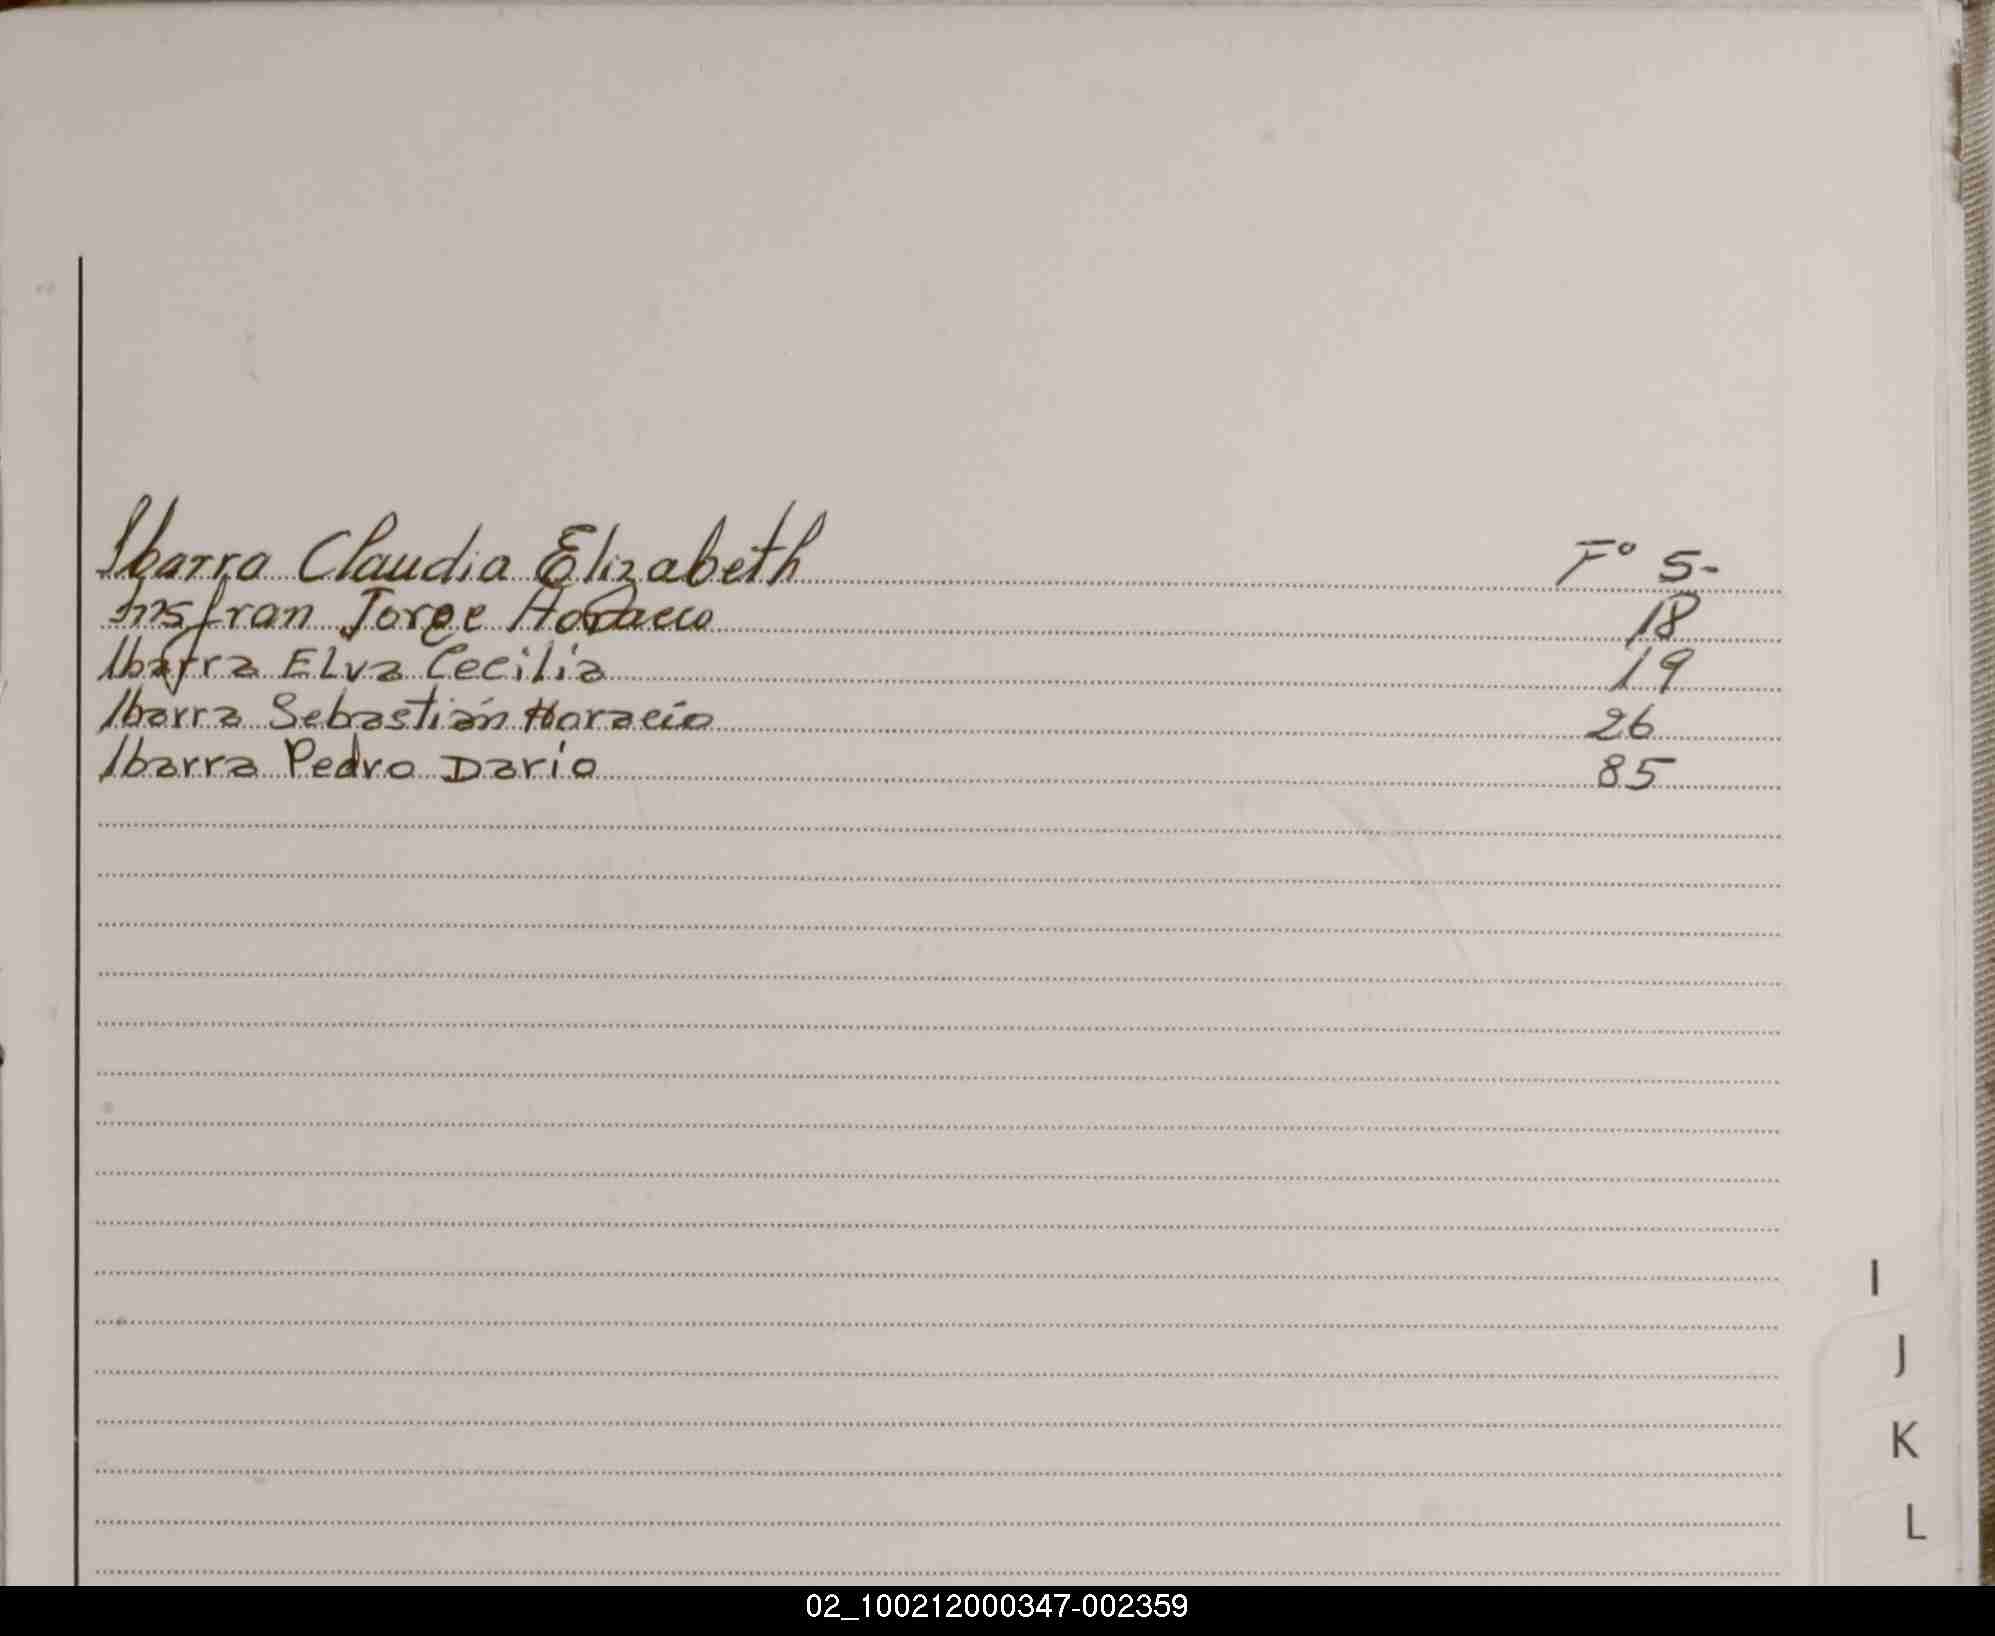 Ibarra Claudia Elizabeth F° 5-
Insfran Jorge Horacio 18
Ibarra Elva Cecilia 19
Ibarra Sebastián Horacio 26
Ibarra Pedro Dario 85
I
J
K
L
02_100212000347-002359